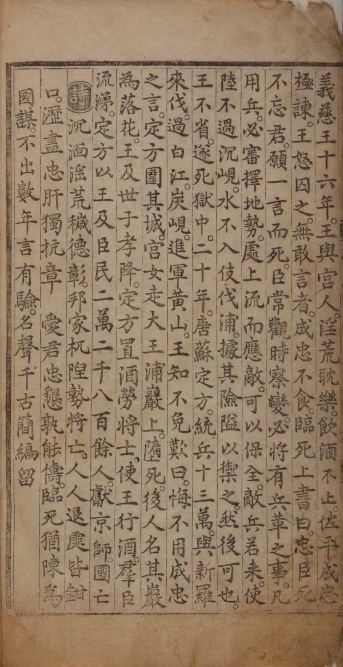 義慈王十六年。王與宮人。淫荒耽樂。飮酒不止。佐平成忠
極諫。王怒囚之。無敢言者。成忠不食。臨死上書曰。忠臣死
不忘君。願一言而死。臣常觀時察變。必將有兵革之事。凡
用兵。必審擇地勢。處上流而應敵。可以保全。敵兵若來。使
陸不過沉峴。水不入伎伐浦。據其險隘以禦之。然後可也。
王不省。遂死獄中。二十年。唐蘇定方。統兵十三萬。與新羅
來伐。過白江。炭峴。進軍黃山。王知不免。歎曰。悔不用成忠
之言。定方圍其城。宮女走大王浦巖上。墮死。後人名其巖
爲落花。王及世子孝降。定方置酒勞將士。使王行酒。羣臣
流涕。定方以王及臣民二萬二千八百餘人。獻京師。國亡
詩 沉湎淫荒穢德彰。邦家杌隉勢將亡。人人退處皆鉗
口。瀝盡忠肝獨抗章 愛君忠懇孰能儔。臨死猶陳爲
國謀。不出數年言有驗。名聲千古簡編留